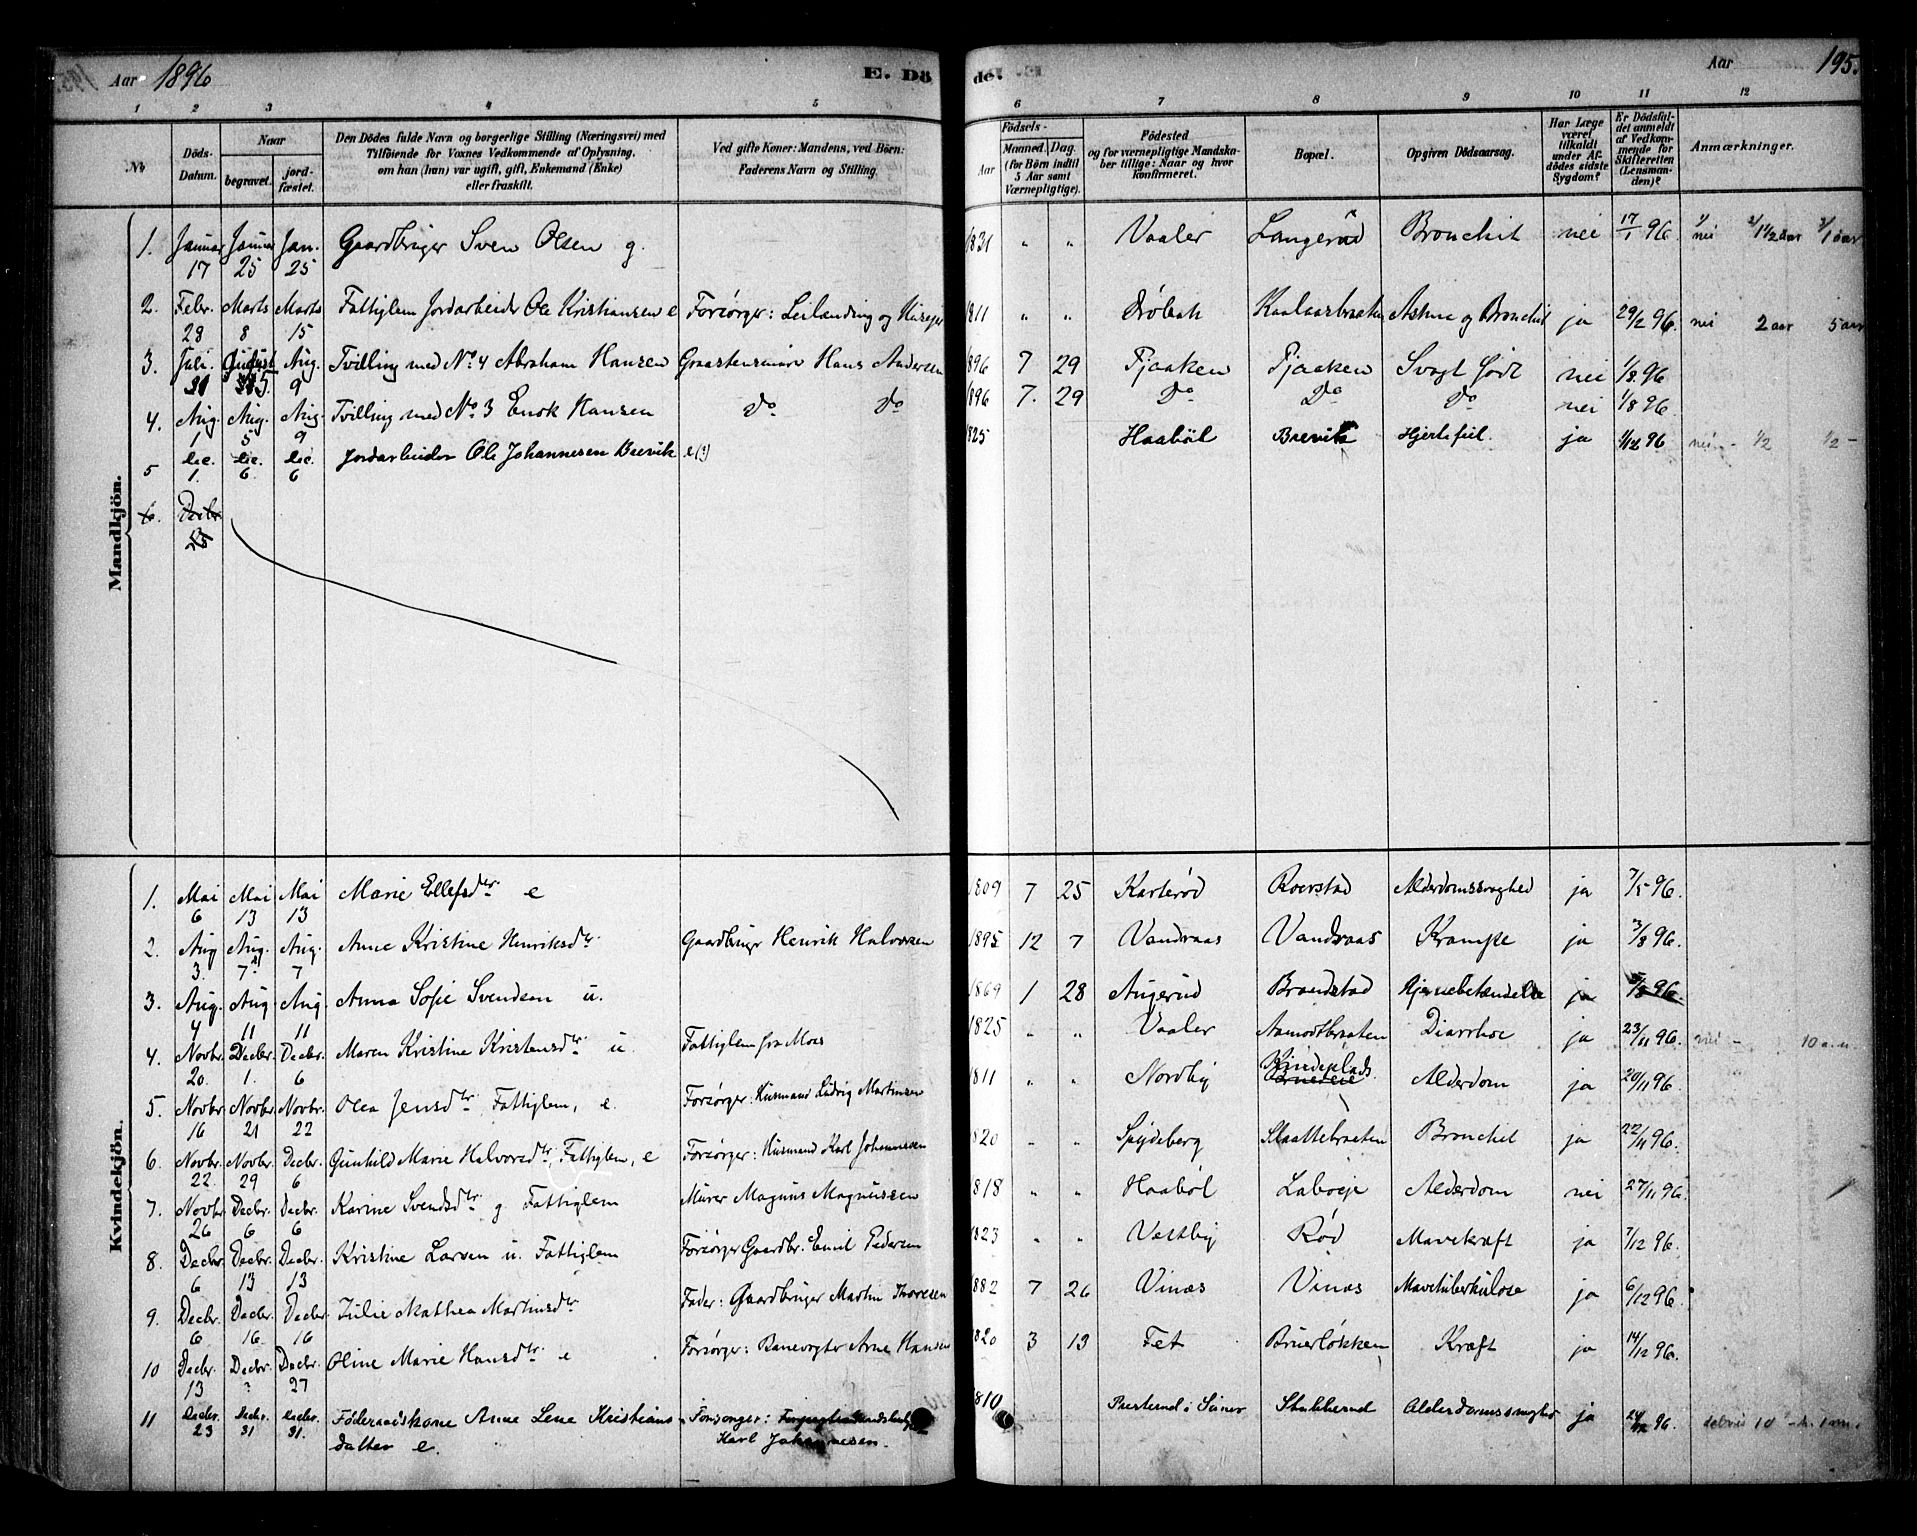 Aar 1896 E. Dö
de. Aar 195.
1 2 3 4 5 6 7 8 9 10 11 12
No Döds-Datum. Naar begravet. jord-fæstet.
Den Dödes fulde Navn og borgerlige Stilling (Næringsvei) med
Tilföiende for Voxnes Vedkommende af Oplysning,
om han (hun) var ugift, gift, Enkemand (Enke)
eller fraskilt.
Ved gifte Koner: Mandens, ved Börn:
Faderens Navn og Stilling.
Födsels-
Aar Maaned. Dag.
(for Börn indtil
5 Aar samt
Værnepligtige).
Födested
og for værnepligtige Mandska-
ber tillige: Naar og hvor
konfirmeret.
Bopæl.
Opgiven Dödsaarsag.
Har Læge
været
tilkaldt
under Af-
dödes sidste
Sygdom?
Er Dödsfal-
det anmeldt
af Vedkom-
mende for
Skifteretten
(Lensman-
den)?
Anmærkninger.
Mandkjön.
1. Januar 17 Januar 25 Jan. 25 Gaardbruger Sven Olsen g. 1831 " " Vaaler Langerud Bronchit nei 17/1 96. 1/ nei 2/ 1 1/2 aar 3/ 1 aar
2. Febr. 28 Marts 8 Marts 15 Fattiglem Jordarbeider Ole Kristiansen e Forsörger: 1811 " " Dröbak Astma og Bronchit ja 29/2 96. nei 2 aar 5 aar
3. Juli 31 August 5. Aug. 9 Tvilling med No. 4 Abraham Hansen Graastensmurer Hans Andersen 1896 7 29 Tjaaken Tjaaken Svagt födt nei 1/8 96
4. Aug. 1 Aug. 5 Aug. 9 Tvilling med No. 3 Enok Hansen Do Do 1896 7. 29 Do Do Do nei 1/8 96
5 Dec. 1. Dec. 6. Dec. 6 Jordarbeider Ole Johannesen Brevik e(?) 1825 Haaböl Brevik Hjertefeil. ja 1/12 96 nei - 1/2 1/2 -
6. Decbr.
Kvindekjön.
1. Mai 6 Mai 13 Mai 13 Marie Ellefsdtr e 1809 7 25 Karteröd Roerstad Alderdomssvaghed ja 7/5 96.
2. Aug 3. Aug. 7 Aug. 7 Anne Kristine Henriksdtr Gaardbruger Henrik Halvorsen 1895 12 7 Vandraas Vandraas Krampe ja 3/8 96.
3. Aug. 4 Aug 11 Aug 11 Anna Sofie Svendsen u. 1869 1 28 Augerud Brandstad Hjernebetændelse ja 5/8 96.
4. Novbr. 20. Decbr. 1. Decbr. 6 Maren Kristine Kristensdtr u Fattiglem fra Moss 1825 " " Vaaler Aamodtbraaten Diarrhoe ja 23/11 96. nei -
5. Novbr. 16 Novbr. 21 Novbr. 22 Olea Jensdtr, Fattiglem, e. Forsörger: Husmand Ludvig Martinsen 1811 " " Nordby Alderdom ja 20/11 96.
6. Novbr. 22. Novbr. 29 Decbr. 6 Gunhild Marie Halvorsdtr, Fattiglem, e Forsörger: Husmand Karl Johannesen 1820 " " Spydeberg Slaattebraaten Bronchit ja 22/11 96.
7. Novbr. 26 Decbr. 6 Decbr. 6 Karine Svendsdtr g. Fattiglem Murer Magnus Magnussen 1818 " " Haaböl Laboeje Alderdom nei 27/11 96.
8. Decbr. 6 Decbr. 13 Decbr. 13 Kristine Larsen u. Fattiglem Forsörger Gaardbr. Emil Pedersen 1823 " " Vestby Röd Mavekræft ja 7/12 96.
9. Decbr. 6 Decbr. 16 Decbr. 16 Julie Mathea Martinsdtr Fader: Gaardbruger Martin Thoresen 1882 7 26 Vinæs Vinæs Mavetuberkulose ja 6/12 96.
10 Decbr. 13 Decbr. ? Decbr. 27 Oline Marie Hansdtr e Forsörger: Banevogter Arne Hansen 1820 3 13 Fet Bruerlökken Kræft ja 14/12 96.
11 Decbr. 23 Decbr. 31 Decbr. 31. Föderaadskone Anne Lene Kristians- Forsörger: 1810 Presterud i Stubberud Alderdomssvaghed ja 24/12 96.
datter e. Karl Johannesen.